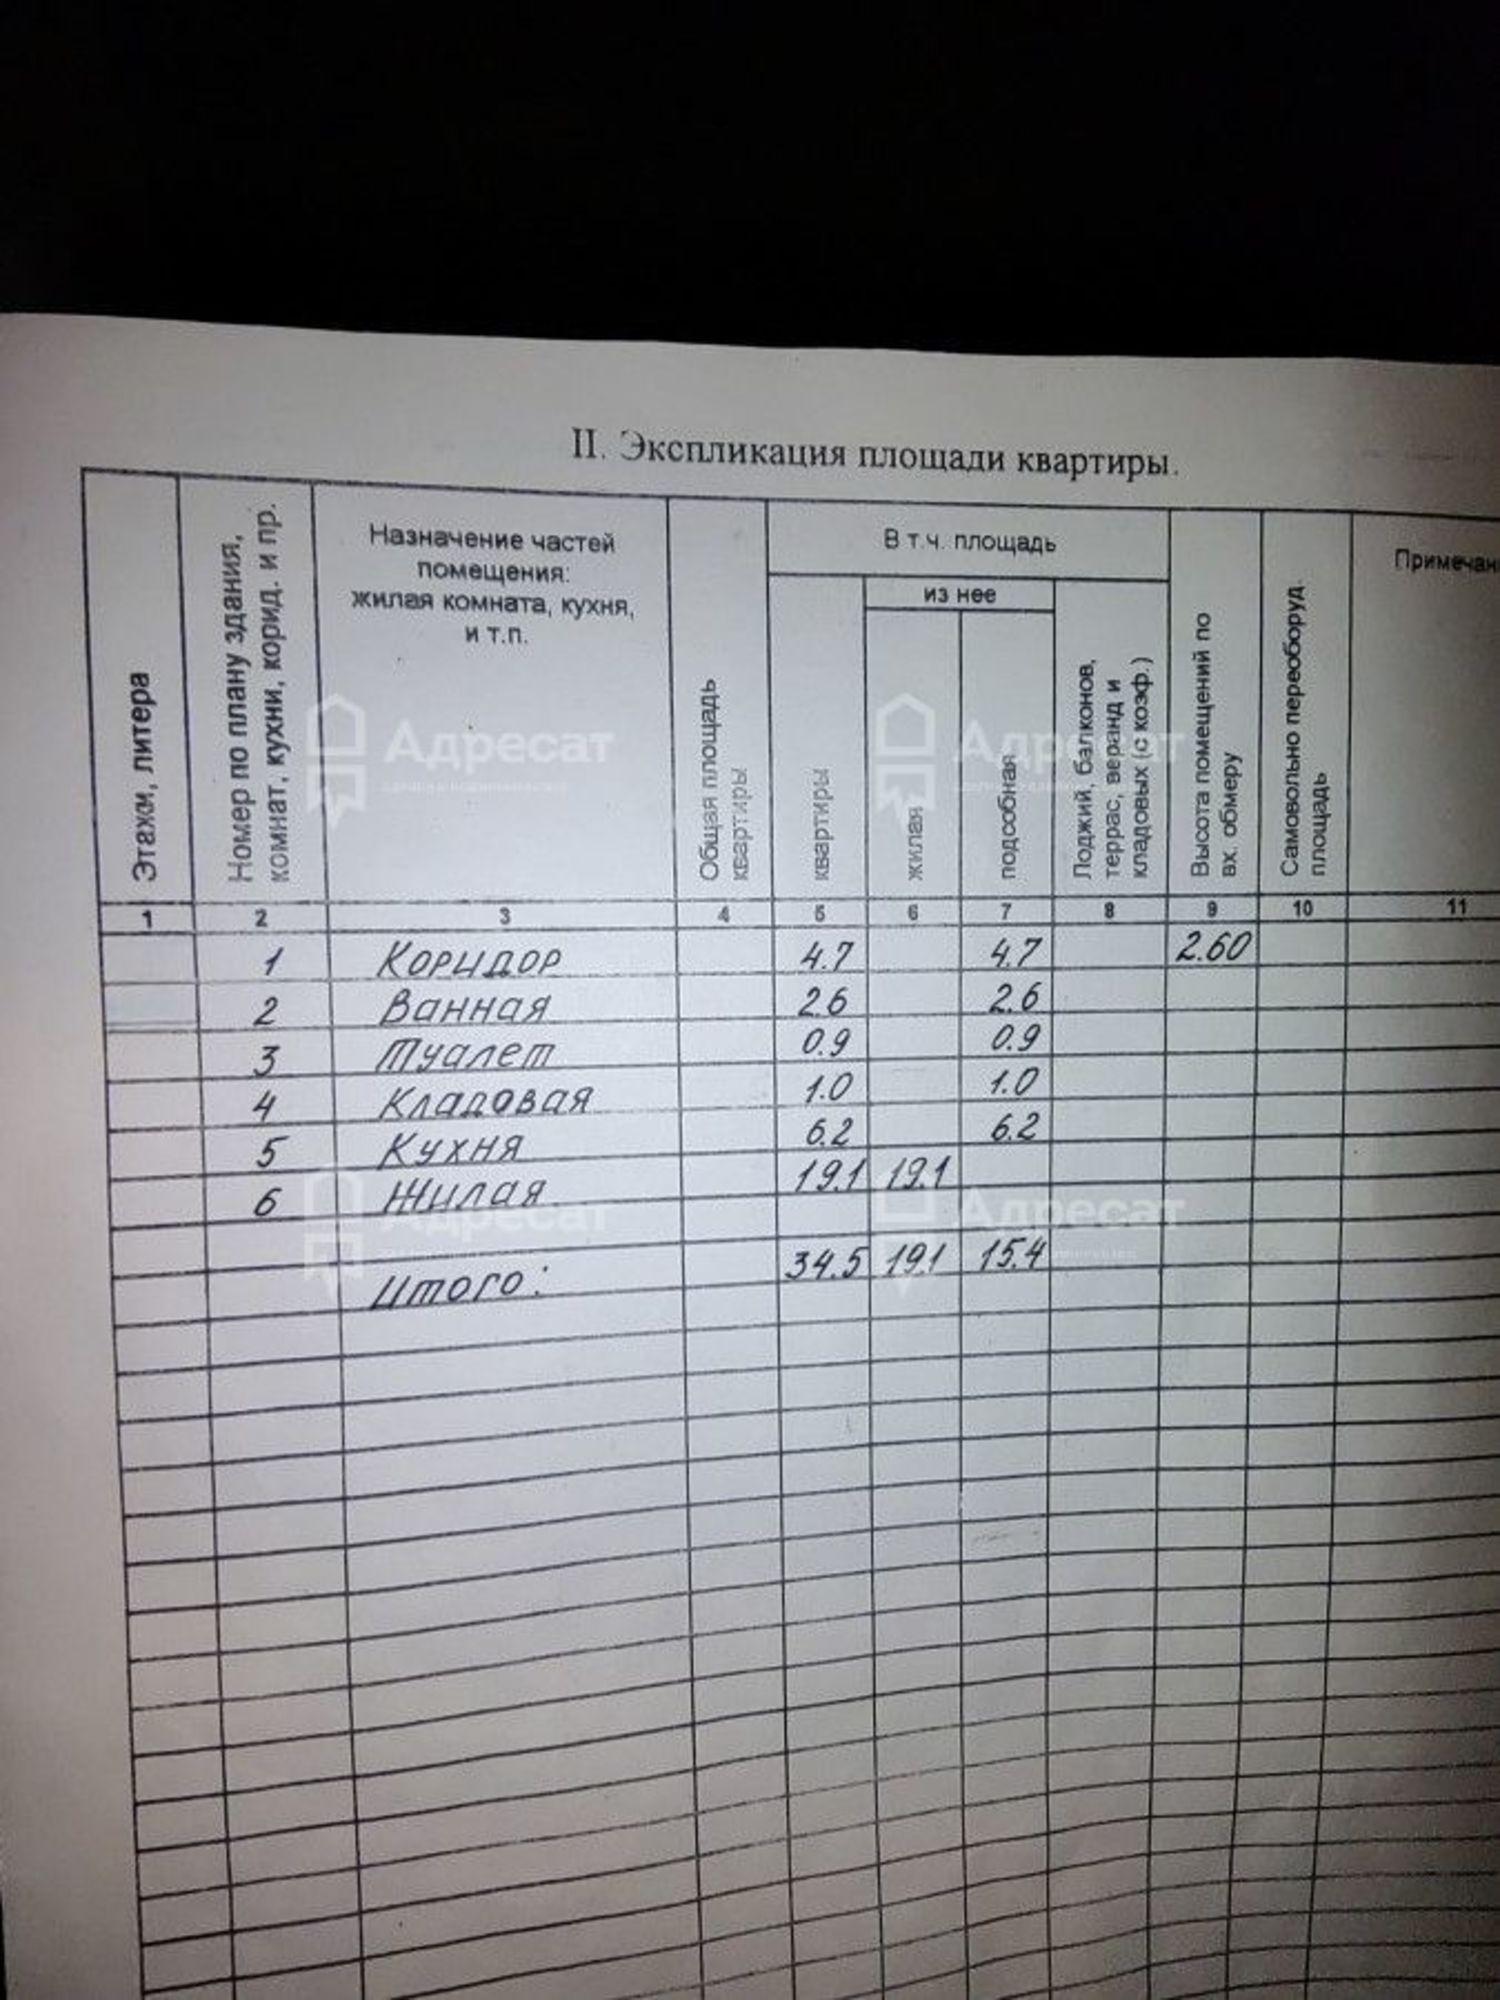 II. Экспликация площади квартиры.
Этажи, литера
Номер по плану здания,
комнат, кухни, корид. и пр.
Назначение частей
помещения:
жилая комната, кухня,
и т.п.
Общая площадь
квартиры
В т.ч. площадь
квартиры
из нее
жилая
подсобная
Лоджий, балконов,
террас, веранд и
кладовых (с коэф.)
Высота помещений по
вх. обмеру
Самовольно переоборуд.
площадь
Примечан
1 2 3 4 5 6 7 8 9 10 11
1 Коридор 4.7 4.7 2.60
2 Ванная 2.6 2.6
3 Туалет 0.9 0.9
4 Кладовая 1.0 1.0
5 Кухня 6.2 6.2
6 Жилая 19.1 19.1
Итого: 34.5 19.1 15.4
Адресат
Адресат
Адресат
Адресат